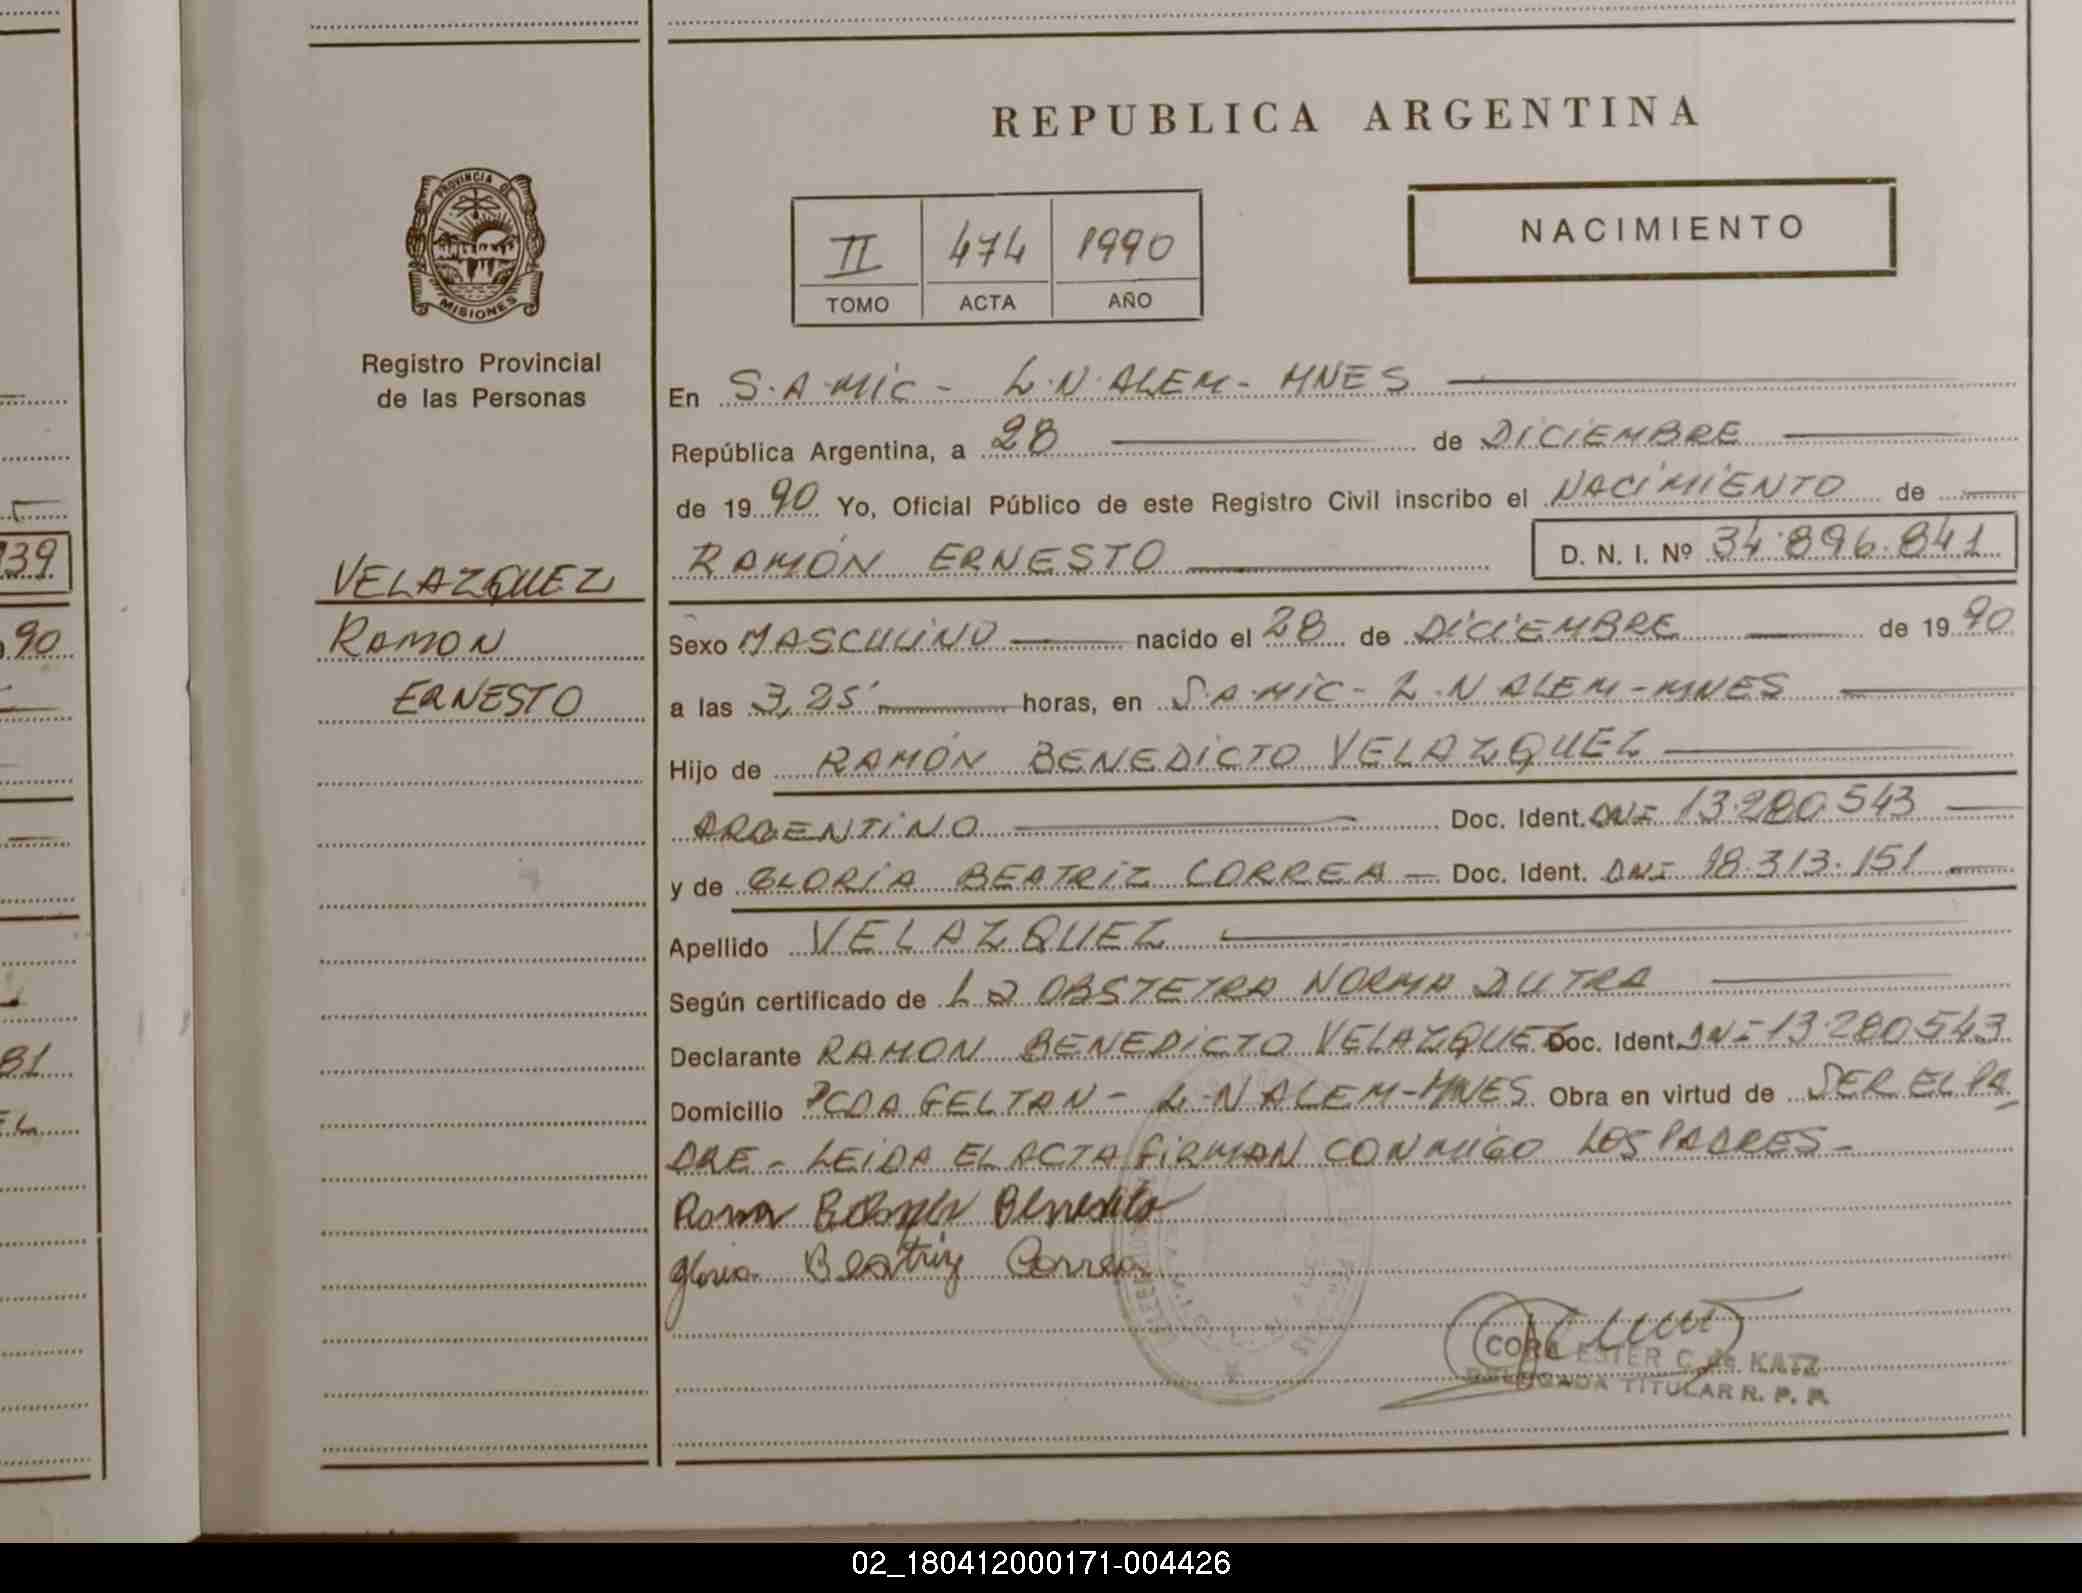 REPUBLICA ARGENTINA
PROVINCIA DE
MISIONES
Registro Provincial
de las Personas
II 474 1990
TOMO ACTA AÑO
NACIMIENTO
VELAZQUEZ
RAMON
ERNESTO
En S.A.MIC - L.N.ALEM - MNES
República Argentina, a 28 de DICIEMBRE
de 1990 Yo, Oficial Público de este Registro Civil inscribo el NACIMIENTO de
RAMÓN ERNESTO D. N. I. Nº 34.896.841
Sexo MASCULINO nacido el 28 de DICIEMBRE de 1990
a las 3,25' horas, en S.A.MIC - L.N ALEM - MNES
Hijo de RAMÓN BENEDICTO VELAZQUEZ
ARGENTINO Doc. Ident. DNI 13.280.543
y de GLORIA BEATRIZ CORREA - Doc. Ident. DNI 18.313.151
Apellido VELAZQUEZ
Según certificado de La OBSTETRA NORMA DUTRA
Declarante RAMON BENEDICTO VELAZQUEZ Doc. Ident. DNI 13.280543
Domicilio PCDA GELTAN - L.N ALEM - MNES Obra en virtud de SER EL PA
DRE - LEIDA EL ACTA FIRMAN CONMIGO LOS PADRES -
Ramon Benedicto
Gloria Beatriz Correa
CORA ESTER C. de KATZ
DELEGADA TITULAR R. P. P.
39
90
81
EL
02_180412000171-004426